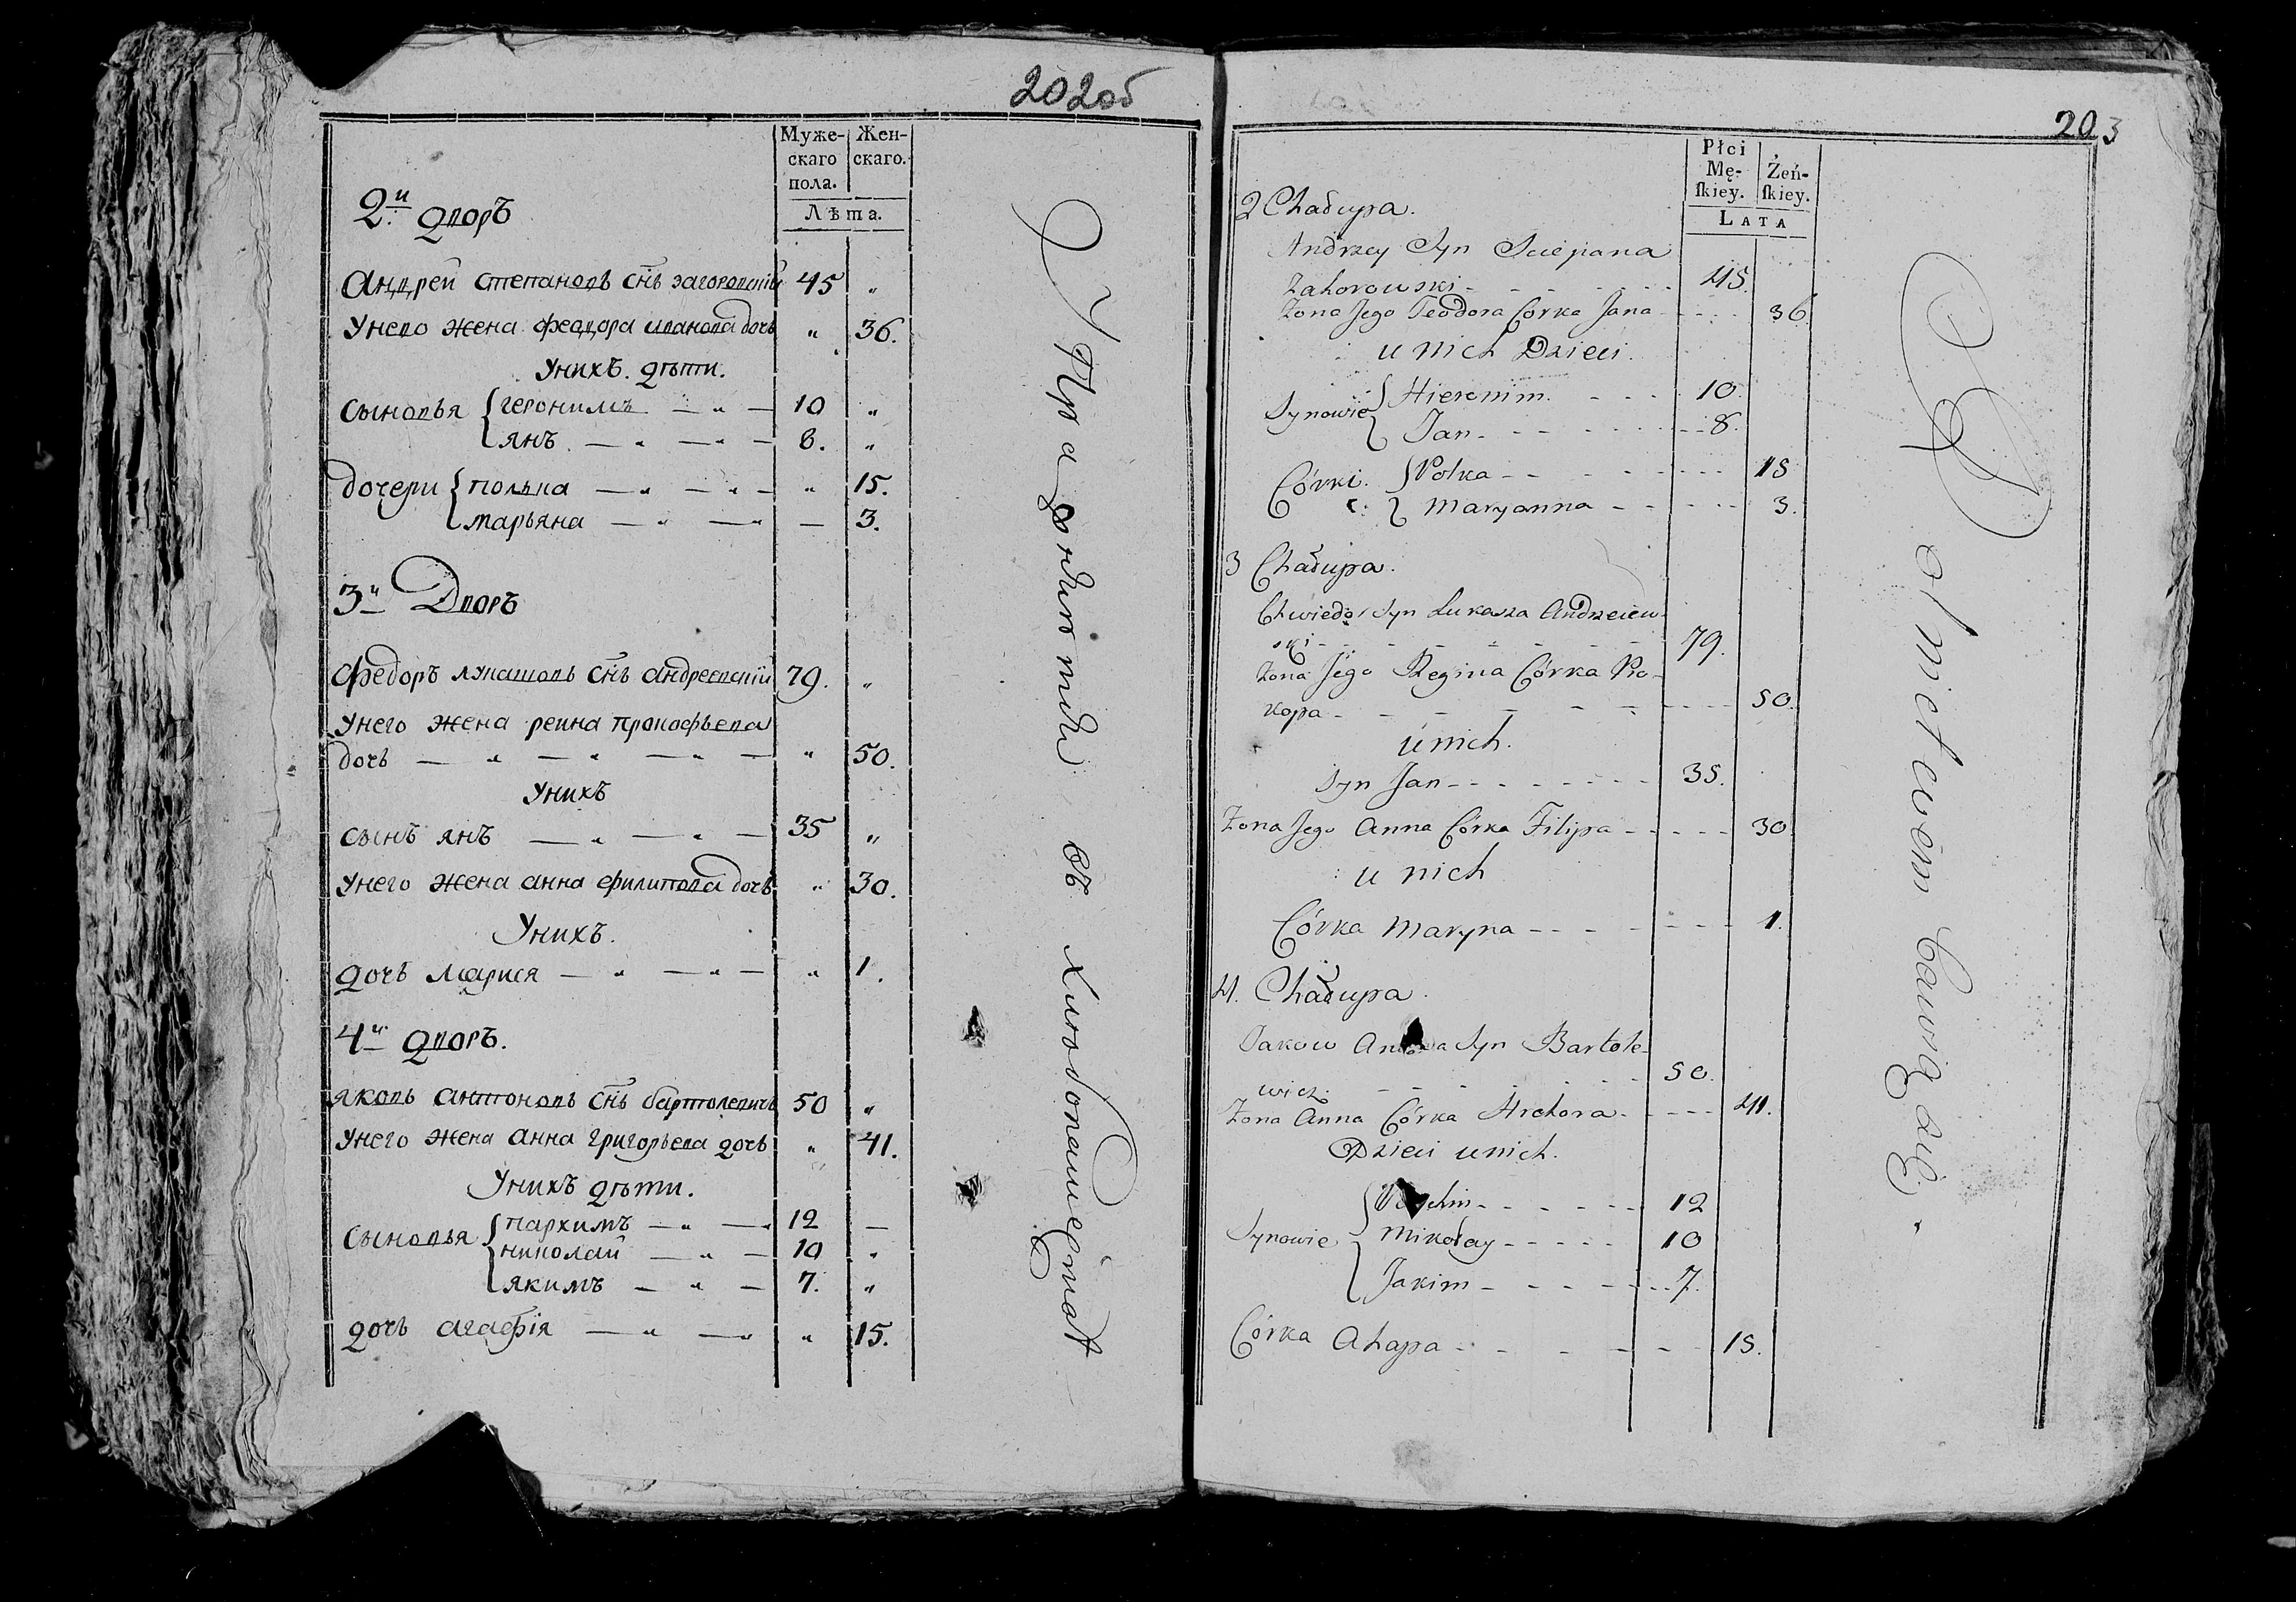 202об
Муже-
скаго
пола.
Жен-
скаго.
Лѣта.
2й дворъ
Андрей Степановъ снъ загоровскій 45 „
Унево жена феадора иванова дочь „ 36.
Унихъ. дѣти.
Сыновья геронимъ — „ — 10 „
янъ. — „ — „ — 8. „
дочери полька — „ — „ — „ 15.
марьяна — „ — „ — 3.
3й Дворъ
Федоръ лукашовъ снъ андреевскій 79. „
Унего жена реина прокофьева
дочь — „ — „ — „ — „ 50.
Унихъ
сынъ янъ — „ — „ — 35 „
Унего жена анна филипова дочь „ 30.
Унихъ.
дочь марися — „ — „ — „ 1.
4й дворъ.
яковъ антоновъ снъ бартолевичъ 50 „
Унего жена анна григорьева дочь „ 41.
Унихъ дѣти.
Сыновья пархимъ — „ — „ 12 —
николай — „ — 10 „
якимъ — „ — 7. „
дочь агафія — „ — „ „ 15.
203
Płci
Mę-
ſkiey.
Żeń-
ſkiey.
LATA
2 Chałupa.
Andrzey Syn Sciepana
Zahorowski - - - - - 45.
Zona Jego Teodora Córka Jana - - - 36
u nich Dzieci.
Synowie Hieronim. - - - 10.
Jan - - - - - - 8.
Córki. Polka - - - - - 15
Maryanna - - - - - 3.
3 Chałupa.
Chwiedor Syn Łukasza Andrzeiew-
ski - - - - - - 79.
Zona Jego Regina Córka Pro-
kopa - - - - - - - 50.
u nich.
Syn Jan - - - - - - 35.
Zona Jego Anna Córka Filipa - - - - 30
u nich
Córka Maryna - - - - - - 1.
4. Chałupa.
Jakow Antona Syn Bartole-
wicz. - - - - - 50.
Zona Anna Córka Hrehora - - - - 41.
Dzieci u nich.
Synowie - - - - - 12
Mikołay - - - - - 10
Jakim - - - - - - 7.
Córka Ahapa - - - - - - 15.